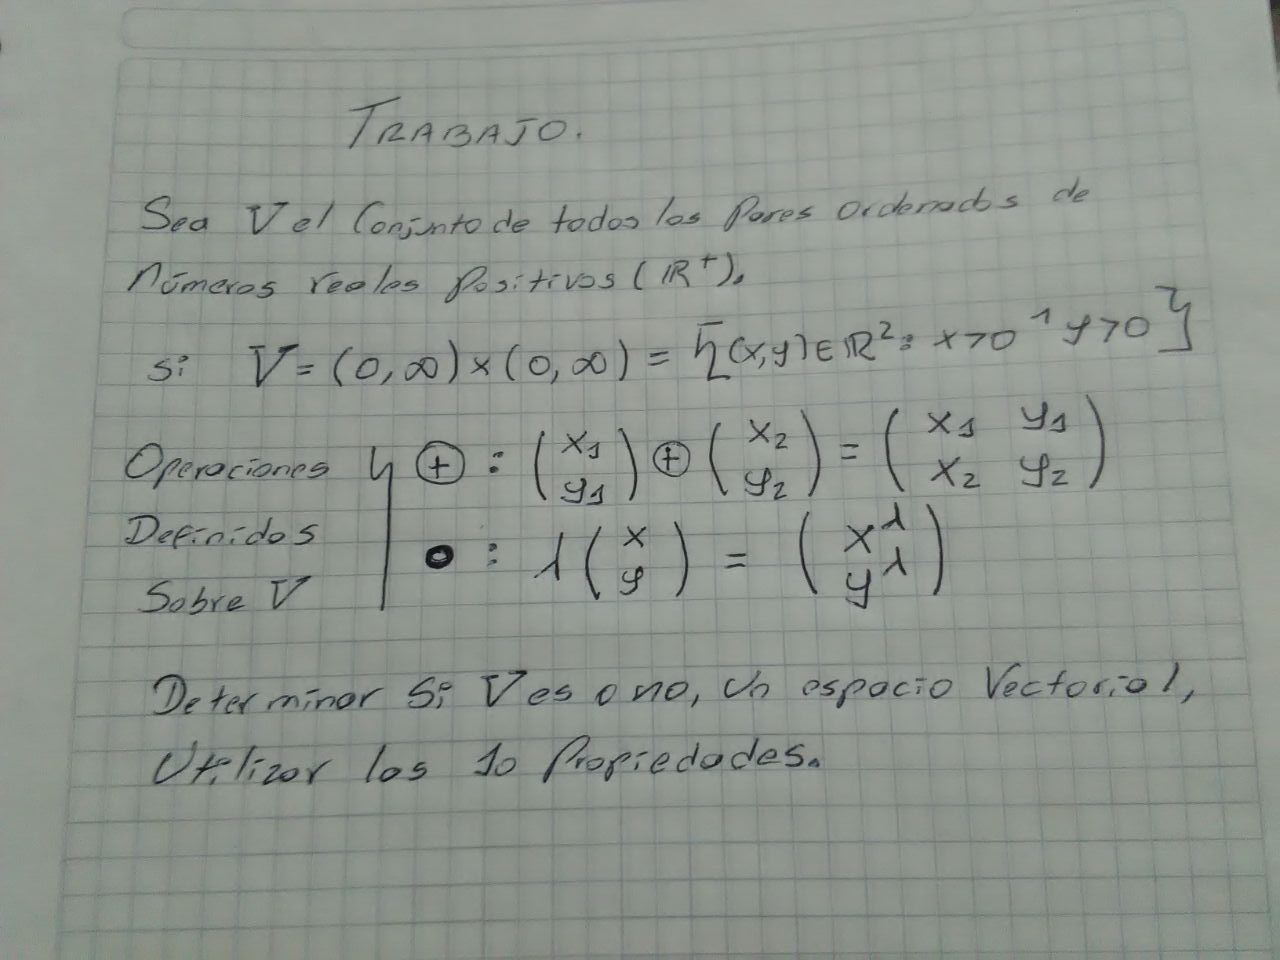 TRABAJO.
Sea V el Conjunto de todos los Pares ordenados de
Números reales Positivos (ℝ⁺).
Si V = (0,∞)×(0,∞) = {(x,y)∈ℝ²: x>0 ^ y>0}
Operaciones ⊕ : (x₁ y₁) ⊕ (x₂ y₂) = (x₁ y₁ x₂ y₂)
Definidas
Sobre V • : λ(x y) = (x^λ y^λ)
Determinar Si V es o no, Un espacio Vectorial,
Utilizar las 10 Propiedades.